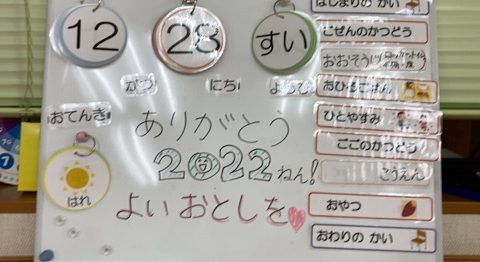 12 28 すい
がつ にち ようび
おてんき
はれ
ありがとう
2022ねん!
よいおとしを
はじまりの かい
ごぜんのかつどう
おおそうじ
おひるごはん
ひとやすみ
ごごのかつどう
こうえん
おやつ
おわりの かい